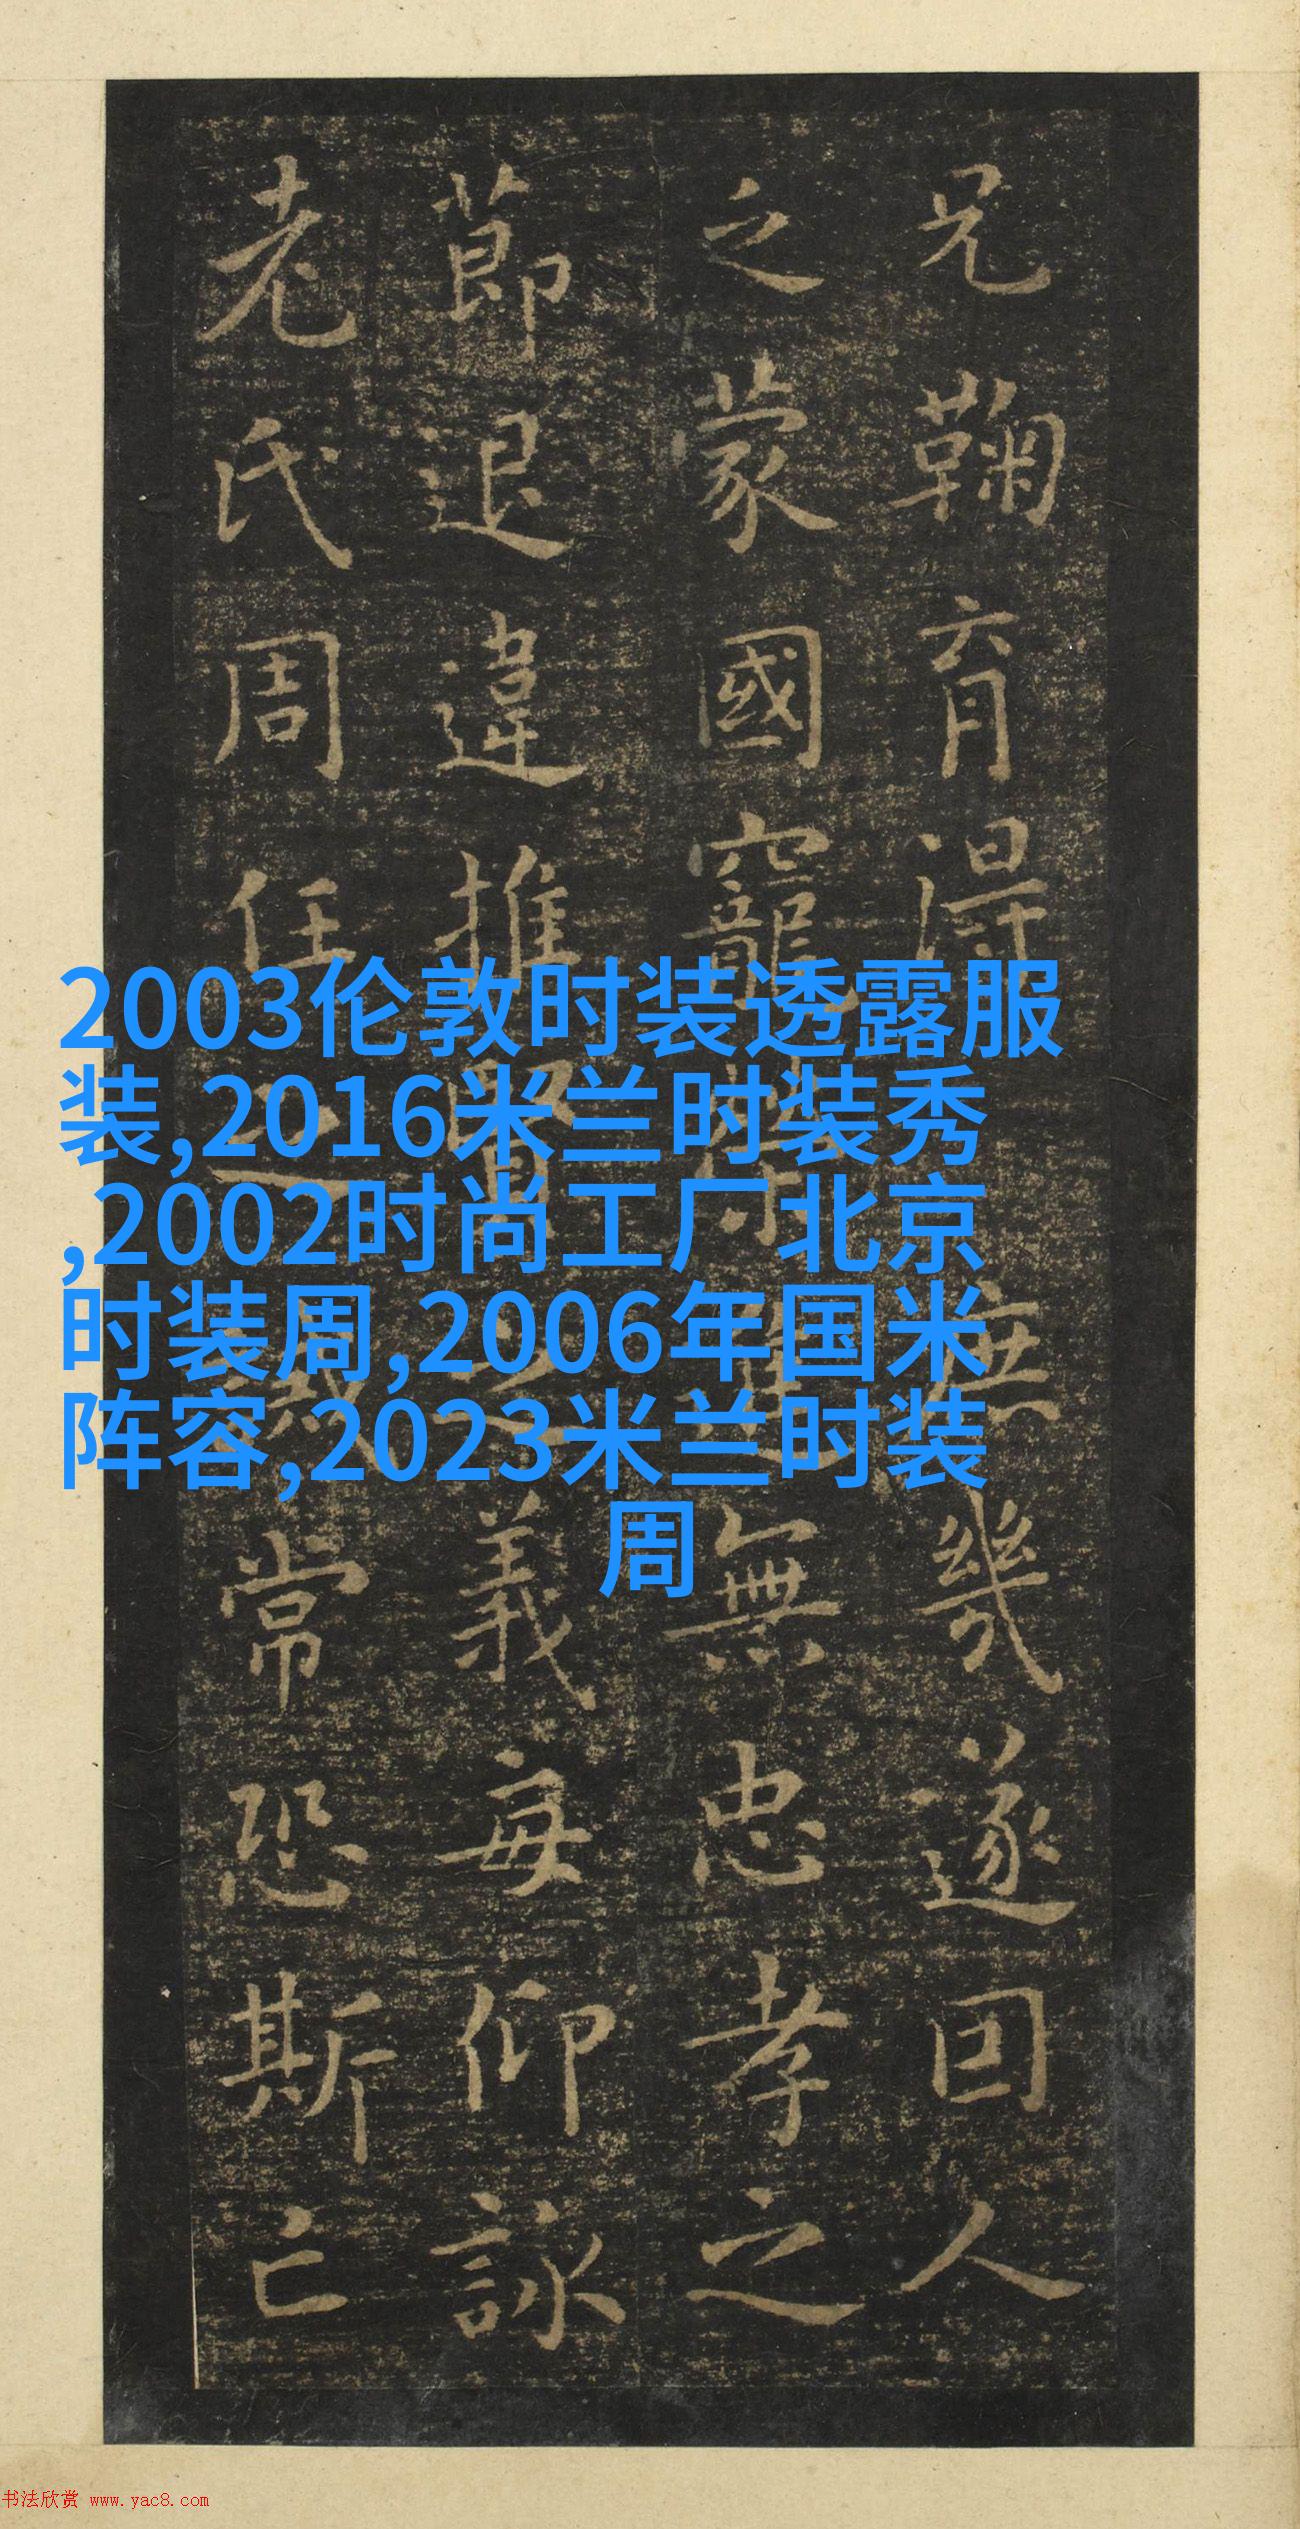 兄鞠育得庶幾遂因人
之蒙國寵榮無忠孝之
節退違推賢之義每仰詠
老氏周任之誡常恐斯亡
2003伦敦时装透露服
装,2016米兰时装秀
,2002时尚工厂北京
时装周,2006年国米
阵容,2023米兰时装
周
书法欣赏 www.yac8.com